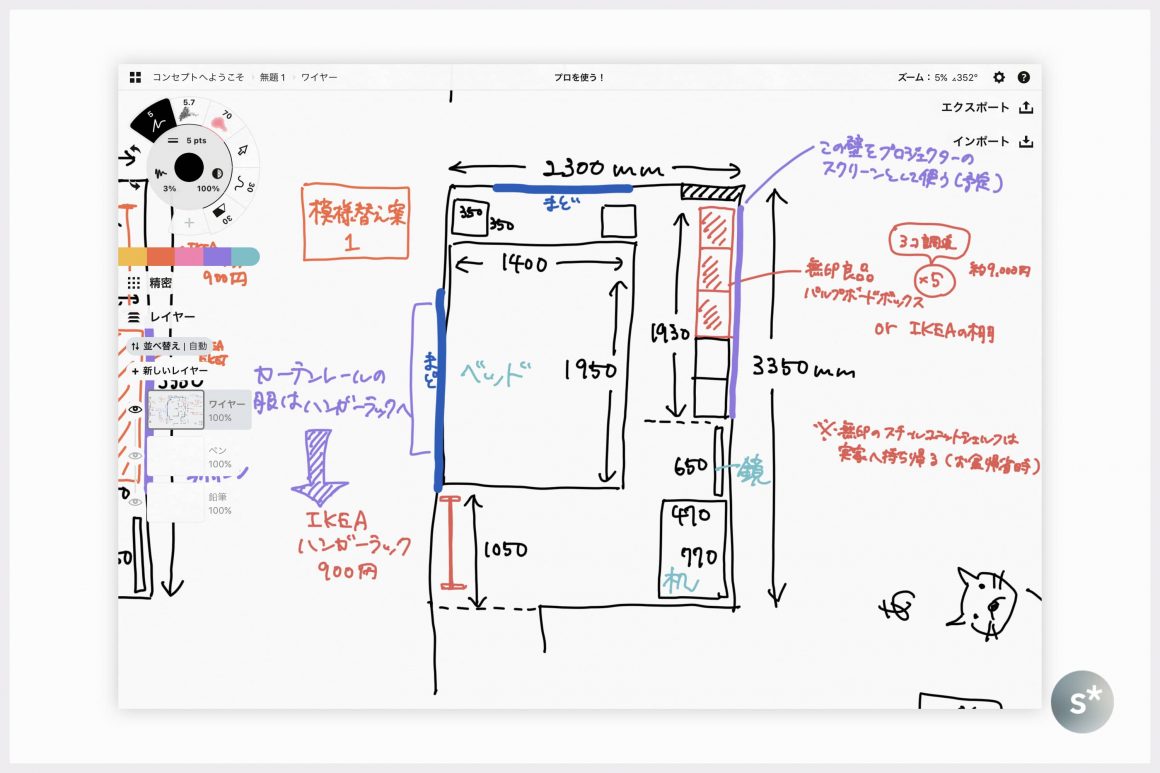 コンセプトへようこそ 無題 1 ワイヤー
プロを使う！
ズーム：5% ⊿352°
エクスポート
インポート
5
5.7
70
30
30
5 pts
3%
100%
精密
レイヤー
並べ替え | 自動
+ 新しいレイヤー
ワイヤー
100%
ペン
100%
鉛筆
100%
IKEA
900円
模様替え案
1
2300mm
まど
350
350
1400
1950
ベッド
まど
カーテンレールの
服はハンガーラックへ
IKEA
ハンガーラック
900円
1050
1930
3350mm
650
鏡
470
770
机
この壁をプロジェクターの
スクリーンとして使う(予定)
3コ調達
×5
約9,000円
無印良品
パルプボードボックス
or IKEAの棚
※無印のスチールユニットシェルフは
実家へ持ち帰る(お盆帰省時)
s*